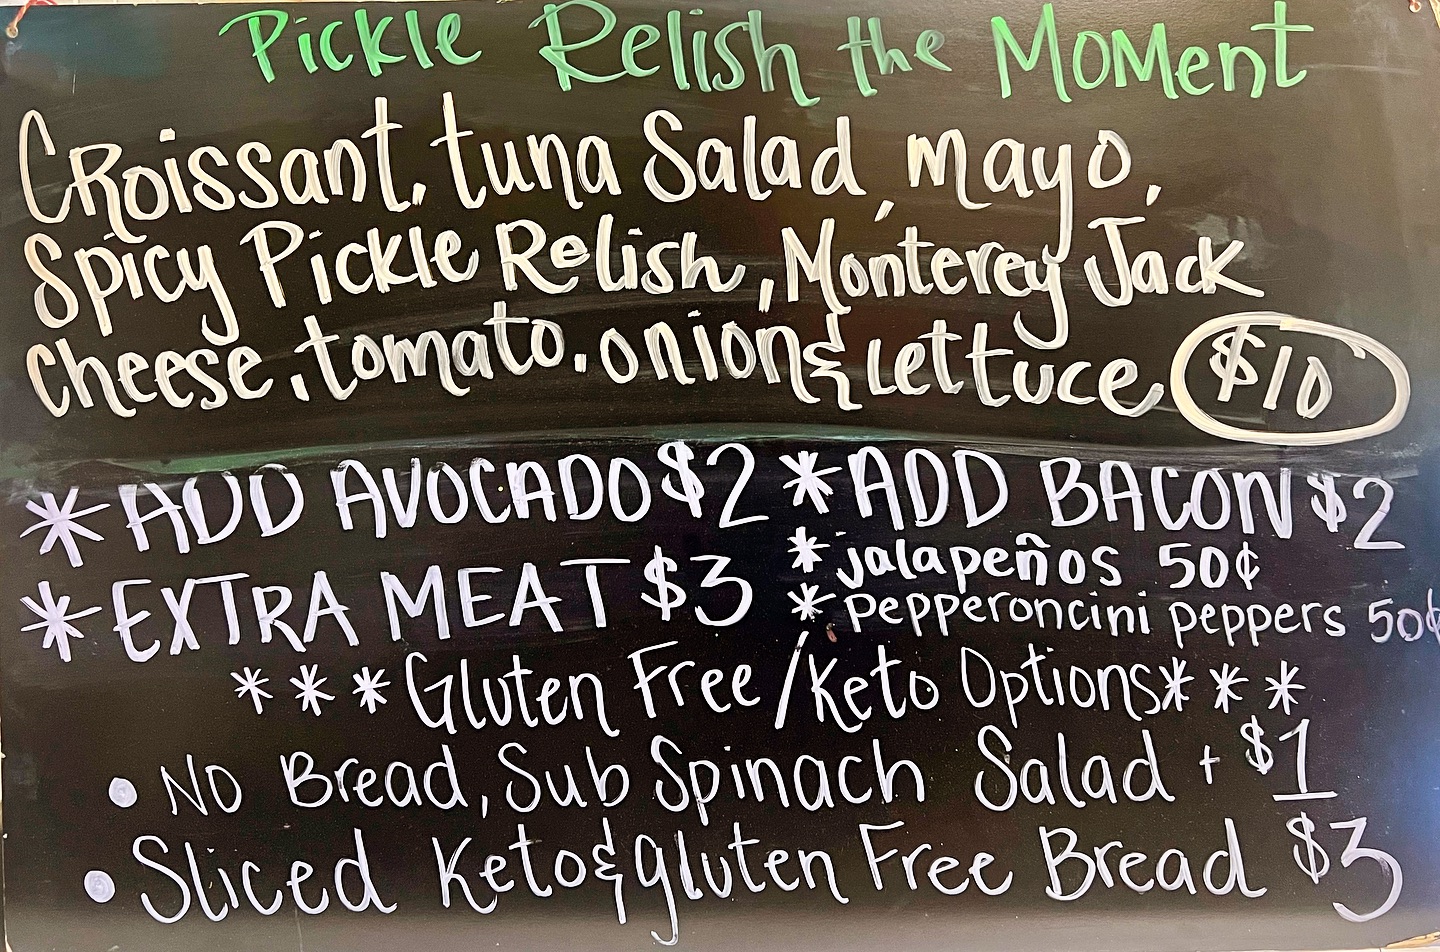 Pickle Relish the Moment
Croissant, tuna Salad, mayo,
Spicy Pickle Relish, Monterey Jack
cheese, tomato, onion & lettuce $10
* ADD AVOCADO $2 * ADD BACON $2
* EXTRA MEAT $3 * jalapeños 50¢
* pepperoncini peppers 50¢
* * * Gluten Free / Keto Options * * *
• No Bread, Sub Spinach Salad + $1
• Sliced Keto & gluten Free Bread $3